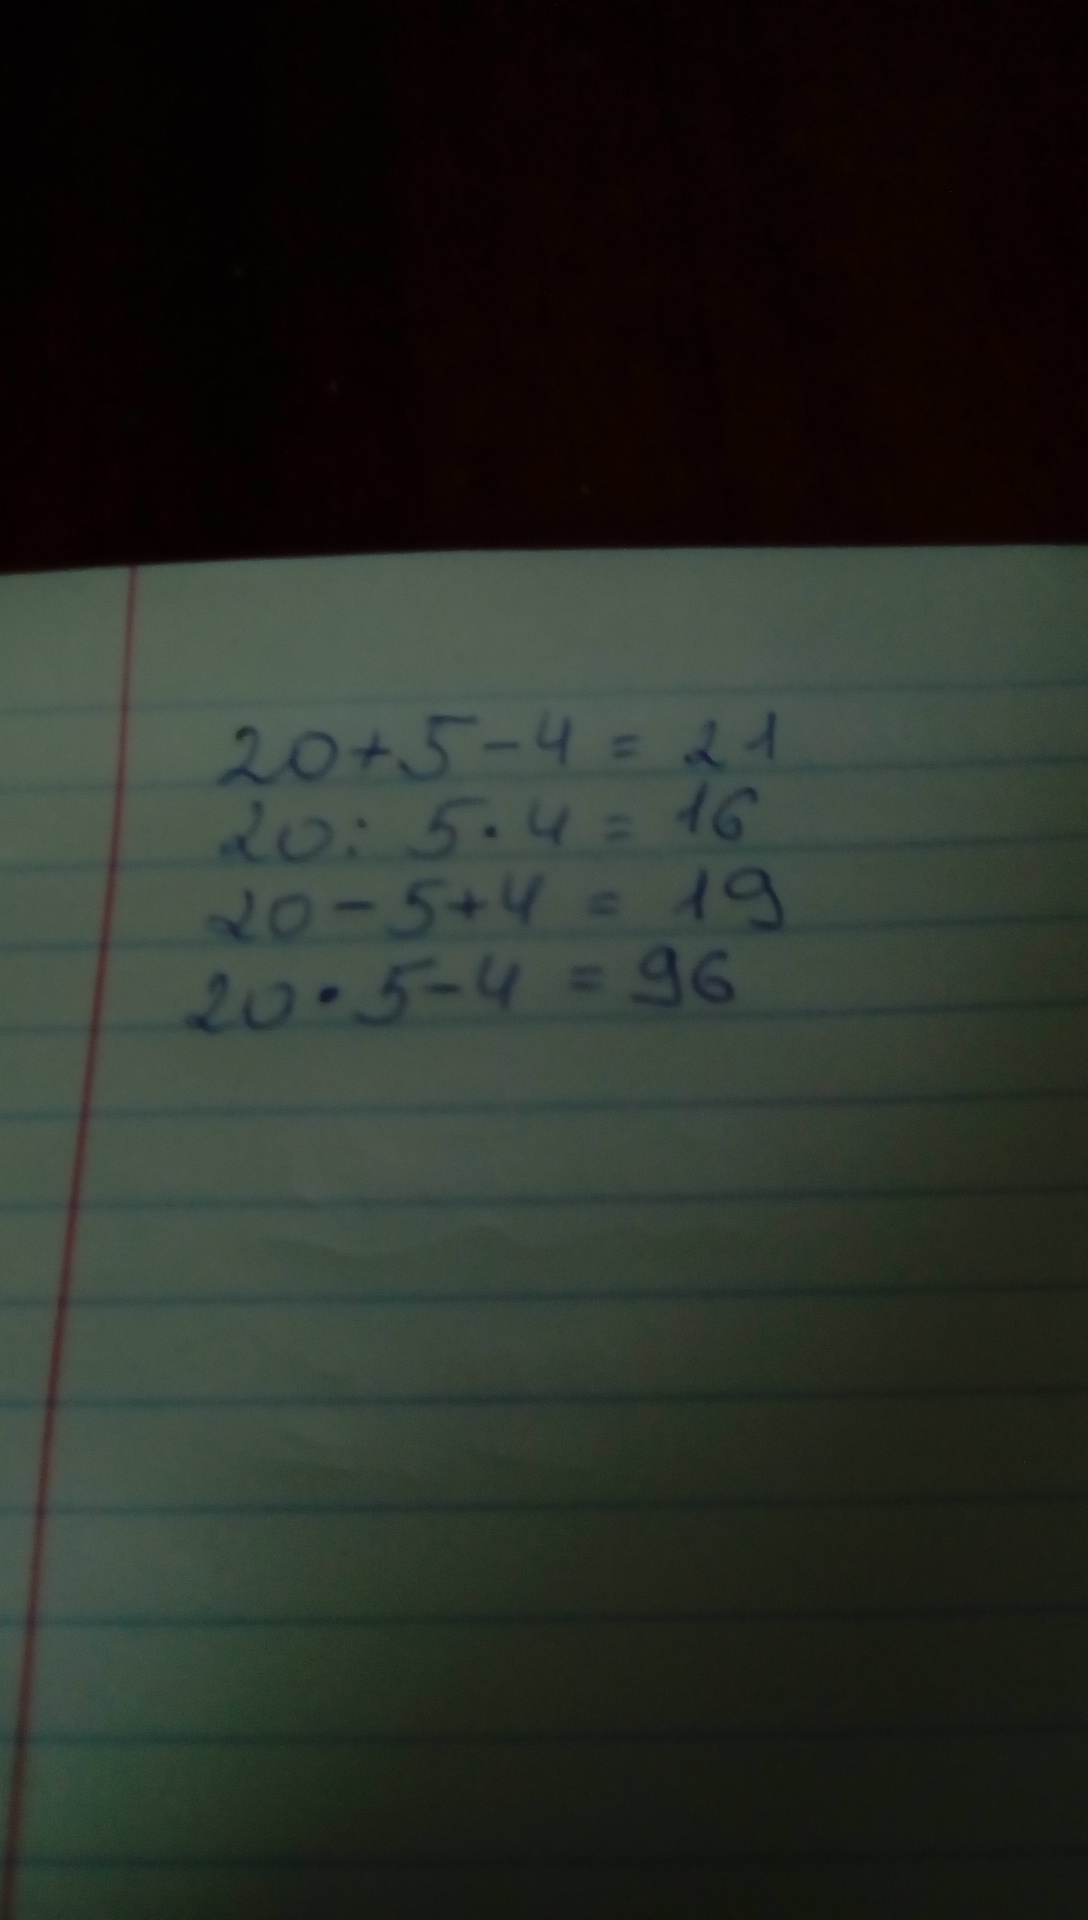 20+5-4 = 21
20: 5·4 = 16
20-5+4 = 19
20·5-4 = 96